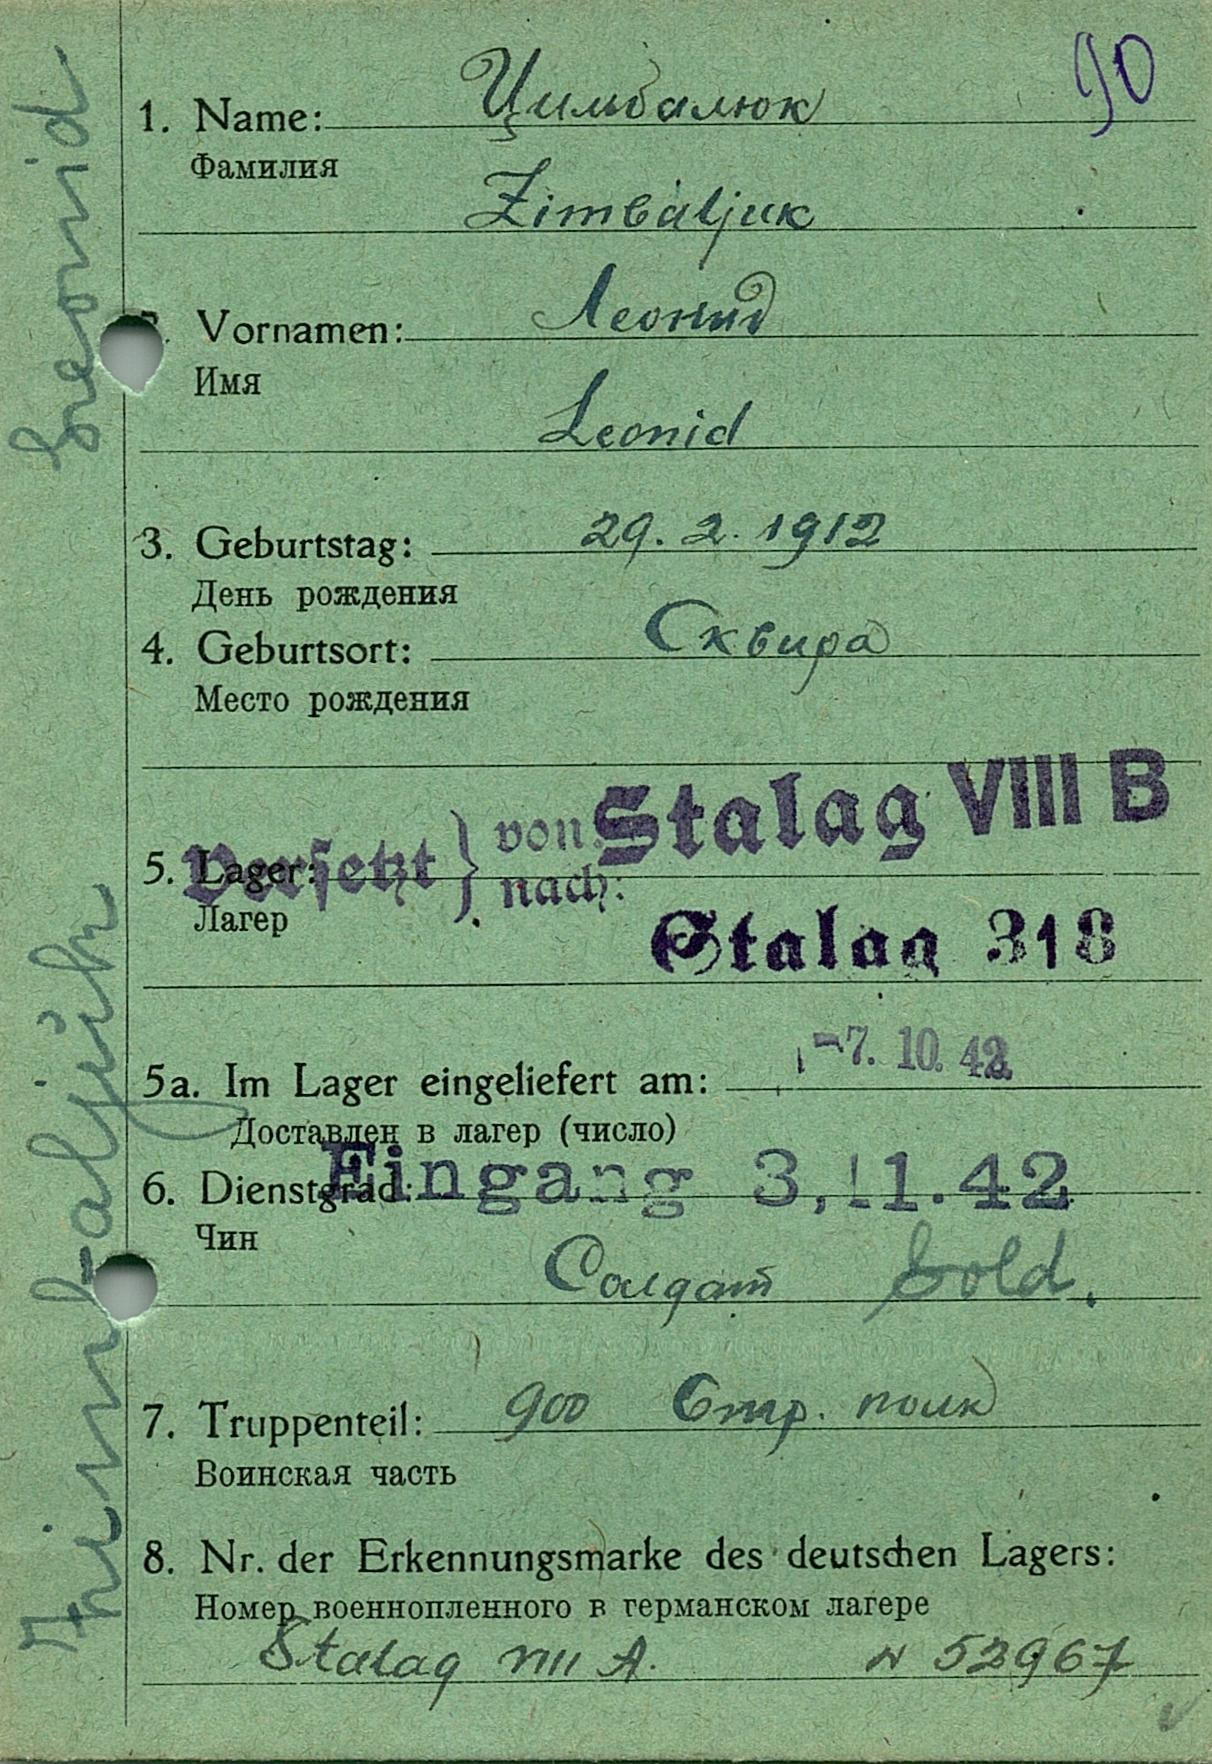 90
1. Name: Цимбалюк
Фамилия
Zimbaljuk
2. Vornamen: Леонид
Имя
Leonid
3. Geburtstag: 29. 2. 1912
День рождения
4. Geburtsort: Сквира
Место рождения
Versetzt } von: Stalag VIII B
5. Lager: nach:
Лагер
Stalag 318
5a. Im Lager eingeliefert am: -7. 10. 42
Доставлен в лагер (число)
Eingang 3.11.42
6. Dienstgrad:
Чин
Солдат Sold.
7. Truppenteil: 900 Стр. полк
Воинская часть
8. Nr. der Erkennungsmarke des deutschen Lagers:
Номер военнопленного в германском лагере
Stalag VIII A. N 52967
Zimbaljuk Leonid